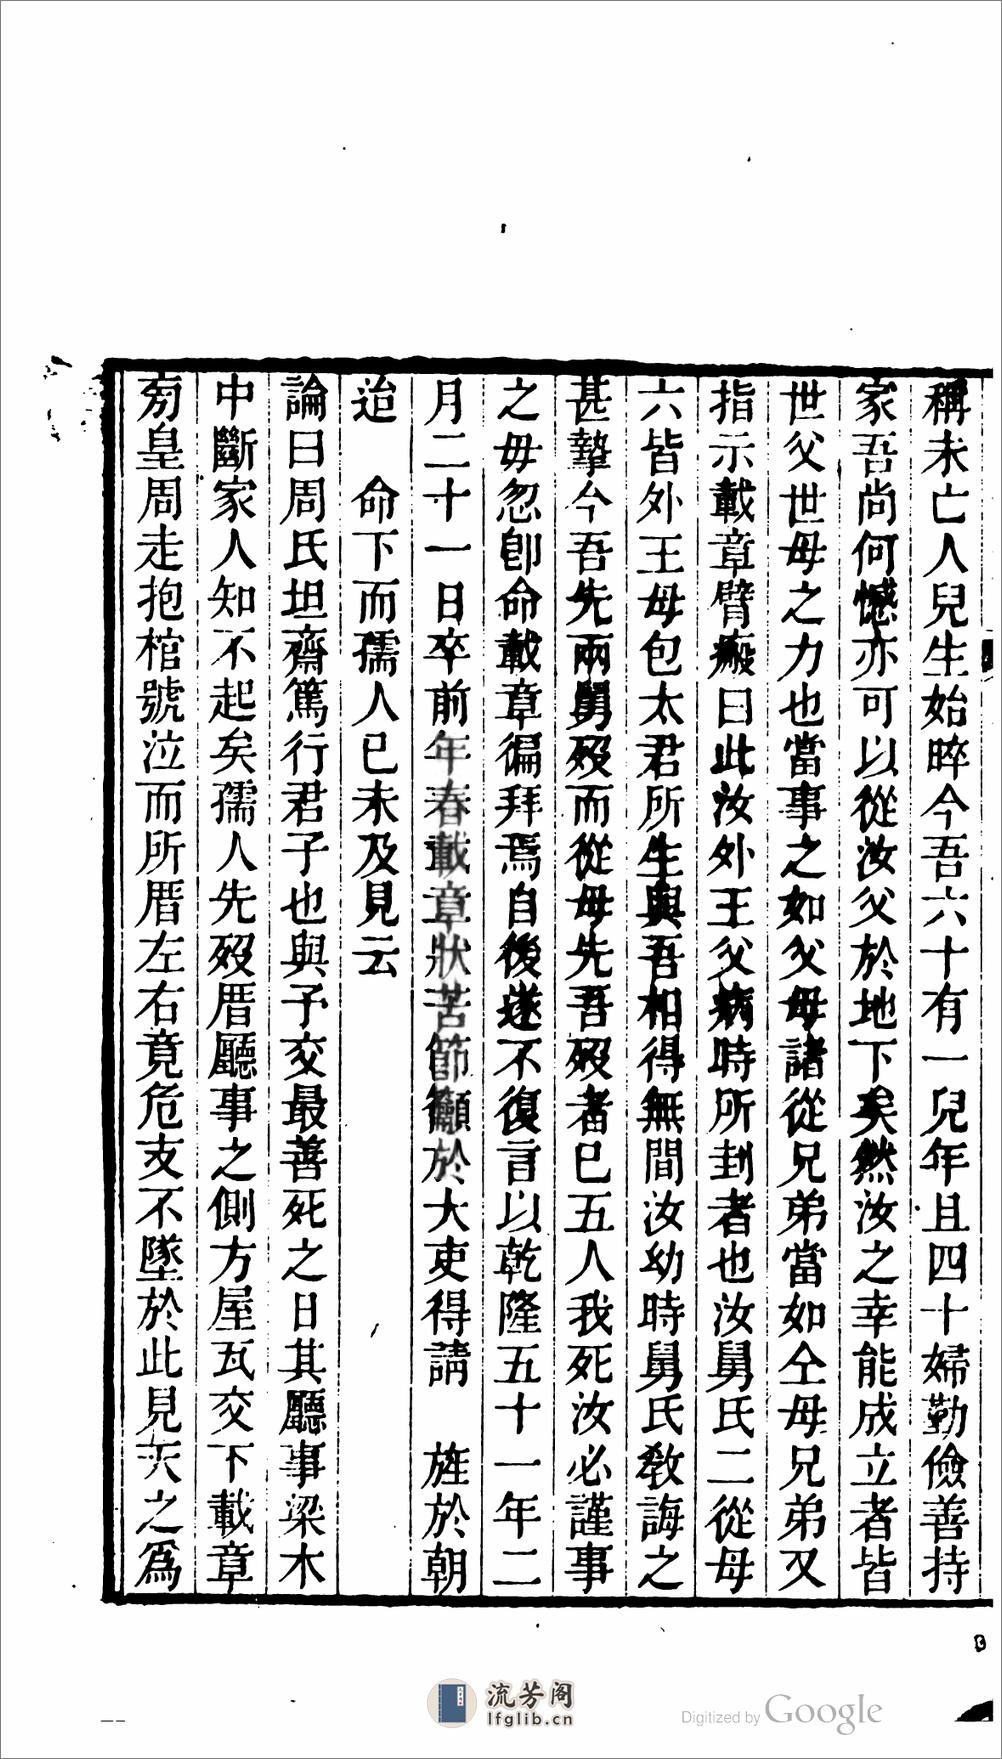 稱未亡人兒生始晬今吾六十有一兒年且四十婦勤儉善持
家吾尚何憾亦可以從汝父於地下矣然汝之幸能成立者皆
世父世母之力也當事之如父母諸從兄弟當如仝母兄弟又
指示載章臂瘢曰此汝外王父病時所刲者也汝舅氏二從母
六皆外王母包太君所生與吾相得無間汝幼時舅氏教誨之
甚摯今吾先兩舅歿而從母先吾歿者已五人我死汝必謹事
之毋忽卽命載章徧拜焉自後遂不復言以乾隆五十一年二
月二十一日卒前年春載章狀苦節籲於大吏得請 旌於朝
迨 命下而孺人已未及見云
論曰周氏坦齋篤行君子也與予交最善死之日其廳事梁木
中斷家人知不起矣孺人先歿厝廳事之側方屋瓦交下載章
旁皇周走抱棺號泣而所厝左右竟危支不墜於此見天之爲
流芳阁
lfglib.cn
Digitized by Google